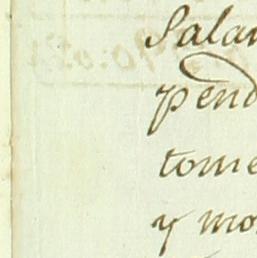 Salar
pend
tome
y mo